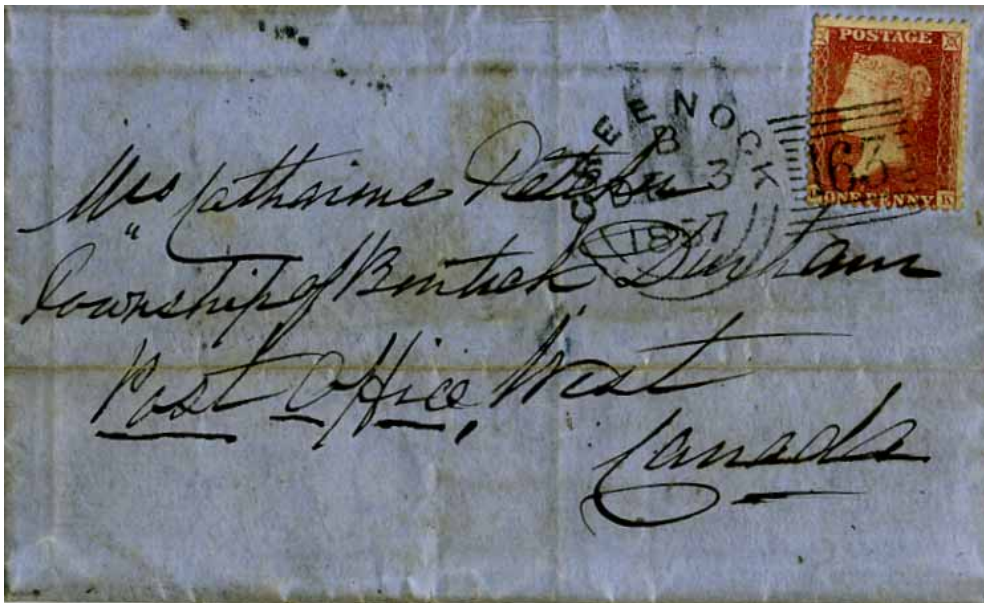 POSTAGE
ONE PENNY
163
GREENOCK
B
3
1857
Mrs Catharine
Township of Bentick Durham
Post Office, West
Canada